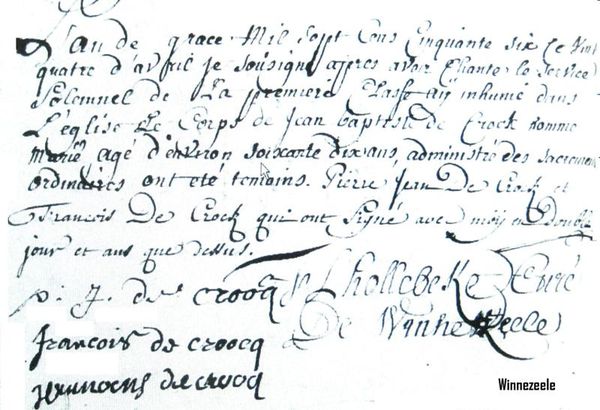 L'an de grace Mil sept Cens Cinquante six le vint
quatre d'avril je sousigne apres avoir Chante le service
Solemnel de La premiere Classe ay inhumé dans
L'église Le Corps de Jean baptiste de Crock homme
marié agé d'environ soixante dix ans, administré des sacremens
ordinaires ont eté temoins. Pierre Jean De Crock et
François De Crock qui ont signé avec moy en Double
jour et ans que dessus.
p: J. de croocq
Curé
De Winnezeele
françois de croocq
de crooq
Winnezeele